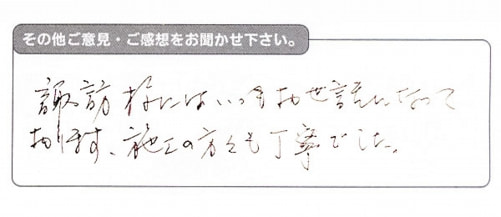 その他ご意見・ご感想をお聞かせ下さい。
諏訪様にはいつもお世話になって
おります、施工の方々も丁寧でした。